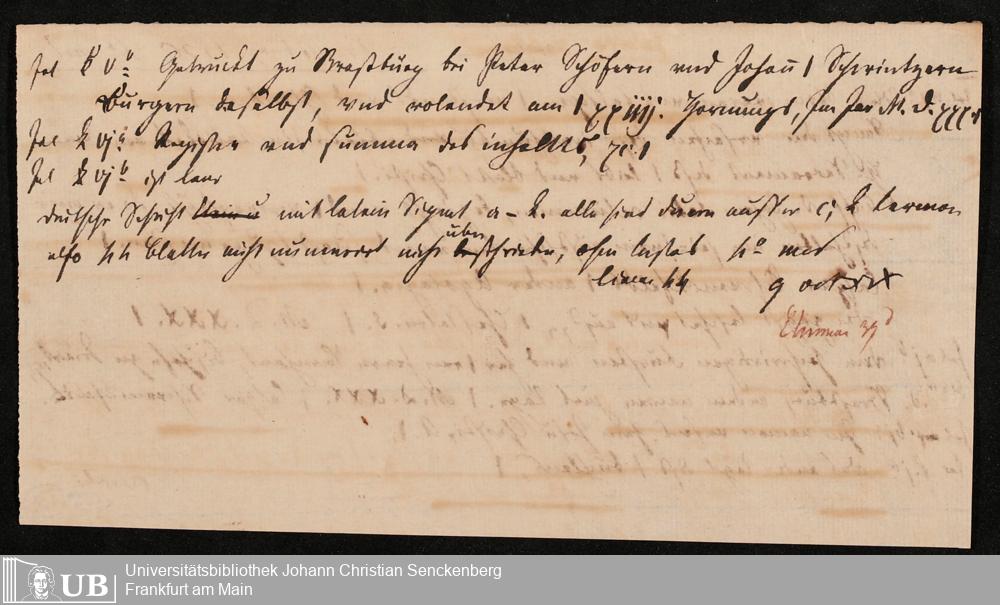 fol k v b: Getruckt zu Straßburg bei Peter Schöfern vnd Johan | Schwintzern
Burgern daselbst, vnd volendet am | xxiiij. Hornungs, Im Jar M. D. xxx.
fol k vj a: Register vnd summa des inhaltts, |
fol k vj b ist leer
deutsche Schrift mit latein Signat a – k. alle sind duern ausser c; k ternion
also 44 Blatter nicht numerirt nicht überschrieben, ohn Custos
linien 44
UB Universitätsbibliothek Johann Christian Senckenberg
Frankfurt am Main